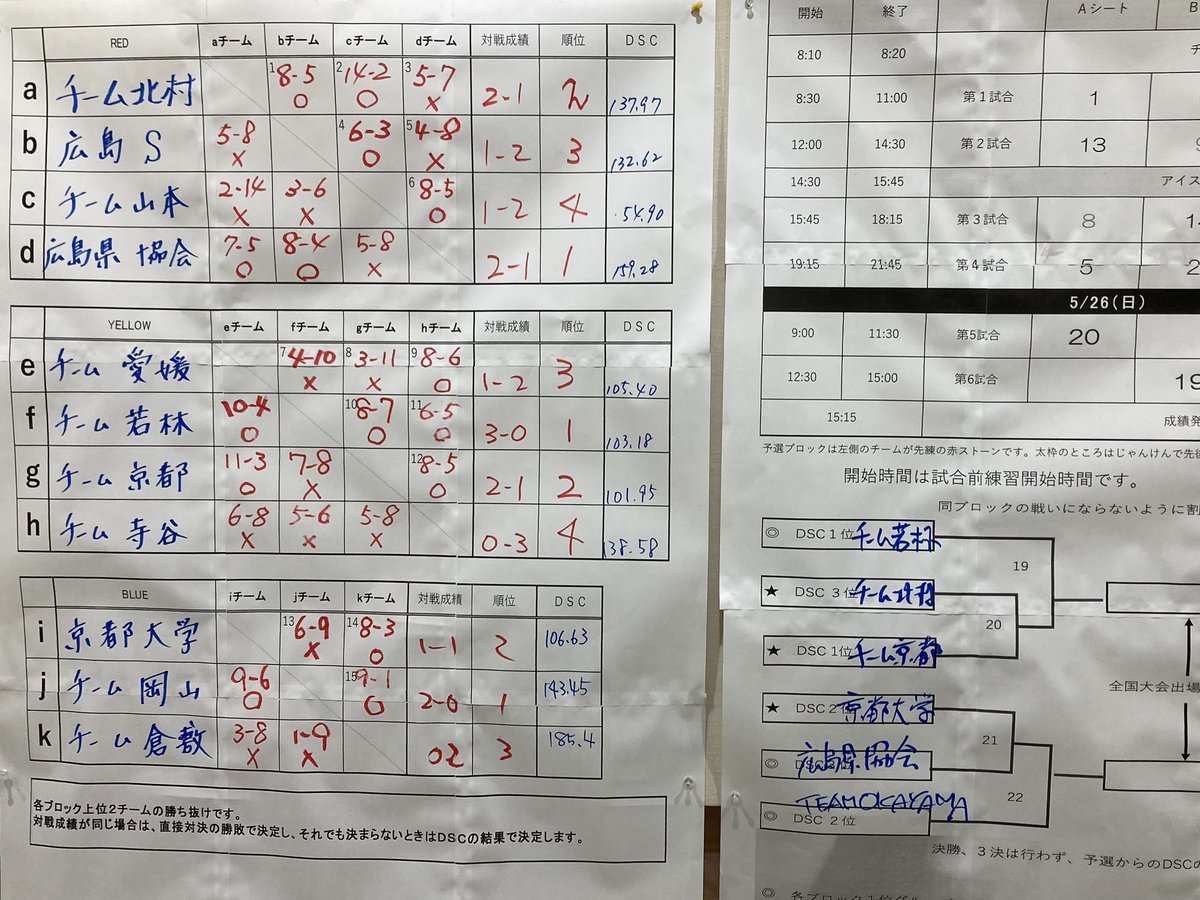 RED aチーム bチーム cチーム dチーム 対戦成績 順位 DSC
a チーム北村 1 8-5 ○ 2 14-2 ○ 3 5-7 × 2-1 2 137.97
b 広島S 5-8 × 4 6-3 ○ 5 4-8 × 1-2 3 132.62
c チーム山本 2-14 × 3-6 × 6 8-5 ○ 1-2 4 54.90
d 広島県協会 7-5 ○ 8-4 ○ 5-8 × 2-1 1 159.28
YELLOW eチーム fチーム gチーム hチーム 対戦成績 順位 DSC
e チーム 愛媛 7 4-10 × 8 3-11 × 9 8-6 ○ 1-2 3 105.40
f チーム 若林 10-4 ○ 10 8-7 ○ 11 6-5 ○ 3-0 1 103.18
g チーム 京都 11-3 ○ 7-8 × 12 8-5 ○ 2-1 2 101.95
h チーム 寺谷 6-8 × 5-6 × 5-8 × 0-3 4 138.58
BLUE iチーム jチーム kチーム 対戦成績 順位 DSC
i 京都大学 13 6-9 × 14 8-3 ○ 1-1 2 106.63
j チーム 岡山 9-6 ○ 15 9-1 ○ 2-0 1 143.45
k チーム 倉敷 3-8 × 1-9 × 02 3 185.4
各ブロック上位2チームの勝ち抜けです。
対戦成績が同じ場合は、直接対決の勝敗で決定し、それでも決まらないときはDSCの結果で決定します。
開始 終了 Aシート B
8:10 8:20
8:30 11:00 第1試合 1
12:00 14:30 第2試合 13
14:30 15:45 アイス
15:45 18:15 第3試合 8
19:15 21:45 第4試合 5 2
5/26(日)
9:00 11:30 第5試合 20
12:30 15:00 第6試合 19
15:15 成績発
予選ブロックは左側のチームが先練の赤ストーンです。太枠のところはじゃんけんで先後
開始時間は試合前練習開始時間です。
同ブロックの戦いにならないように割
◎ DSC 1位 チーム若林
19
★ DSC 3位 チーム北村
20
★ DSC 1位 チーム京都
全国大会出場
★ DSC 2位 京都大学
21
◎ 広島県協会
22
TEAM OKAYAMA
◎ DSC 2位
決勝、3決は行わず、予選からのDSCの
◎ 各ブロック1位グル